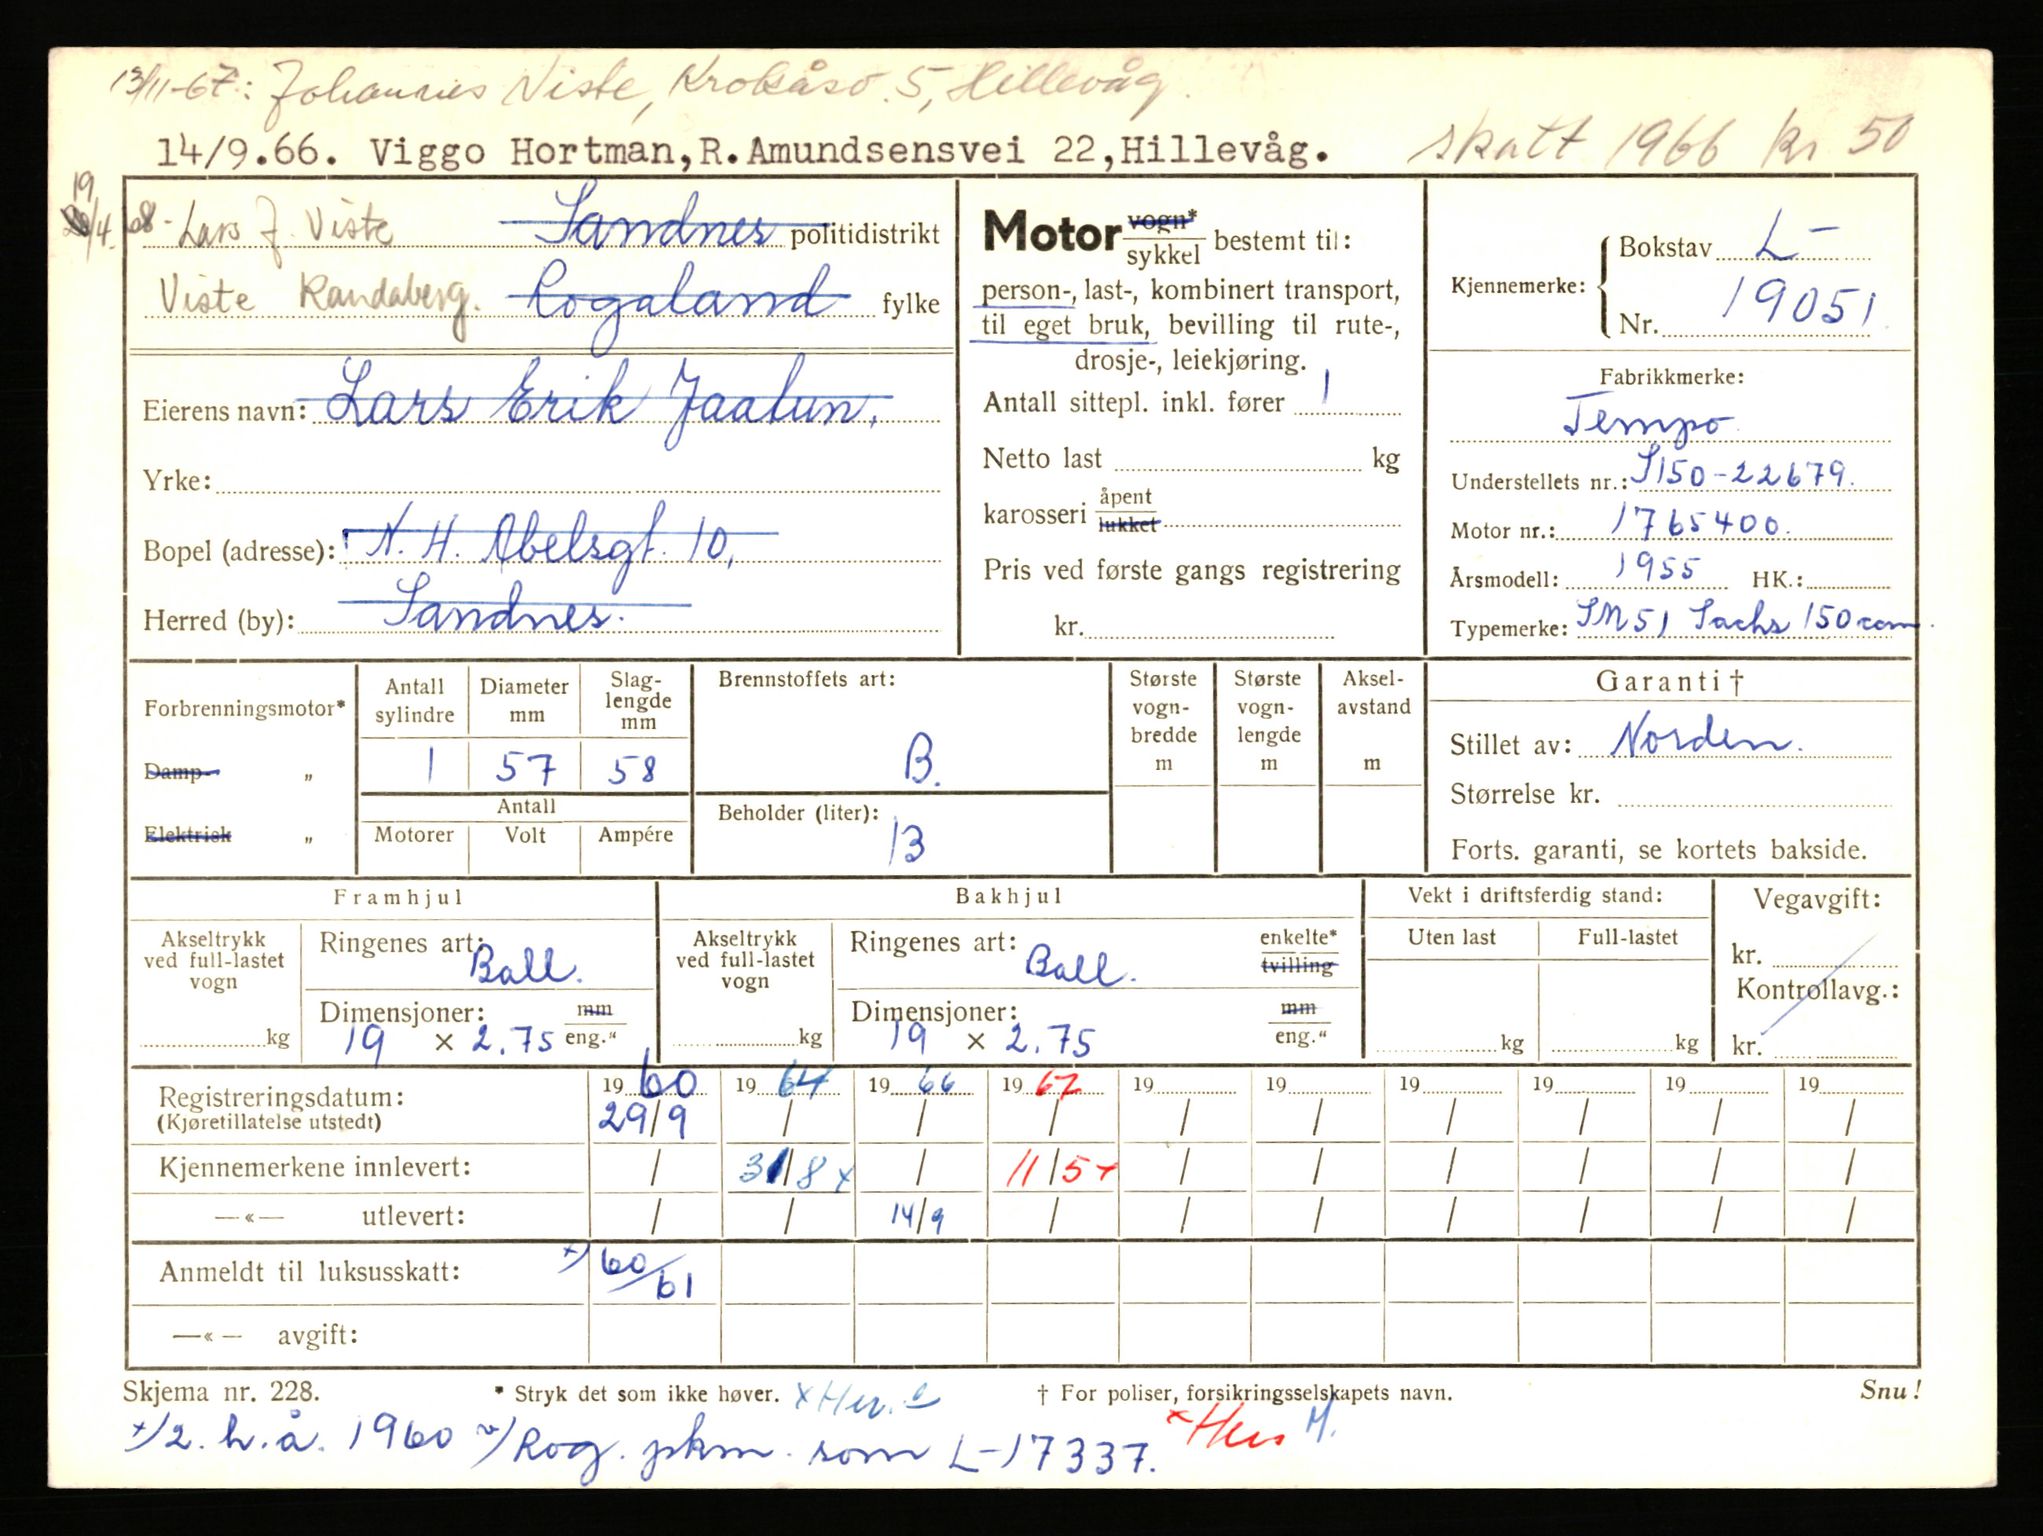 13/11-67: Johannes Viste, Krokåsv. 5, Hillevåg.
14/9.66. Viggo Hortman, R. Amundsensvei 22, Hillevåg. skatt 1966 kr 50
19/4. 68 - Lars J. Viste Sandnes politidistrikt
Viste Randaberg. Rogaland fylke
Eierens navn: Lars Erik Jaatun.
Yrke:
Bopel (adresse): N. H. Abelsgt. 10,
Herred (by): Sandnes.
Motor vogn* sykkel bestemt til:
person-, last-, kombinert transport,
til eget bruk, bevilling til rute-,
drosje-, leiekjøring.
Antall sittepl. inkl. fører 1
Netto last kg
karosseri åpent lukket
Pris ved første gangs registrering
kr.
Kjennemerke: Bokstav L-
Nr. 19051
Fabrikkmerke:
Tempo
Understellets nr.: S150-22679.
Motor nr.: 1765400.
Årsmodell: 1955 HK.:
Typemerke: SM51 Sachs 150ccm.
Forbrenningsmotor*
Damp- „
Elektrisk „
Antall sylindre 1
Diameter mm 57
Slag-lengde mm 58
Antall
Motorer Volt Ampére
Brennstoffets art:
B.
Beholder (liter):
13
Største vogn-bredde m
Største vogn-lengde m
Aksel-avstand m
Garanti †
Stillet av: Norden.
Størrelse kr.
Forts. garanti, se kortets bakside.
Framhjul
Akseltrykk ved full-lastet vogn kg
Ringenes art: Ball.
Dimensjoner: mm
19 × 2.75 eng."
Bakhjul
Akseltrykk ved full-lastet vogn kg
Ringenes art: Ball. enkelte* tvilling
Dimensjoner: mm
19 × 2.75 eng."
Vekt i driftsferdig stand:
Uten last Full-lastet
kg kg
Vegavgift:
kr.
Kontrollavg.:
kr.
Registreringsdatum: 19 60 19 64 19 66 19 67 19 19 19 19 19 19
(Kjøretillatelse utstedt) 29/9 / / / / / / / / /
Kjennemerkene innlevert: / 31/8 x / 11/5 x / / / / / /
—«— utlevert: / / 14/9 / / / / / / /
Anmeldt til luksusskatt: +) 60/61
—«— avgift:
Skjema nr. 228. * Stryk det som ikke høver. x Hen. † For poliser, forsikringsselskapets navn. Snu!
+) 2. h.å. 1960 Rog. pkm. som L-17337. x Hen